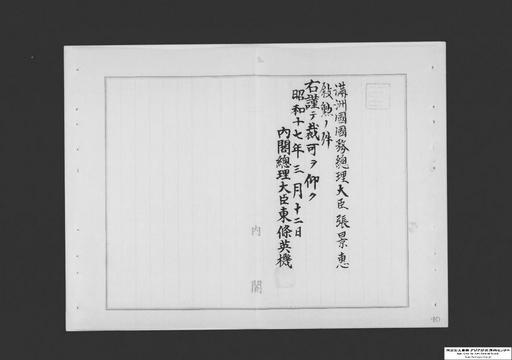 滿洲國國務總理大臣張景惠
敍勲ノ件
右謹テ裁可ヲ仰ク
昭和十七年三月十二日
內閣總理大臣東條英機
內閣